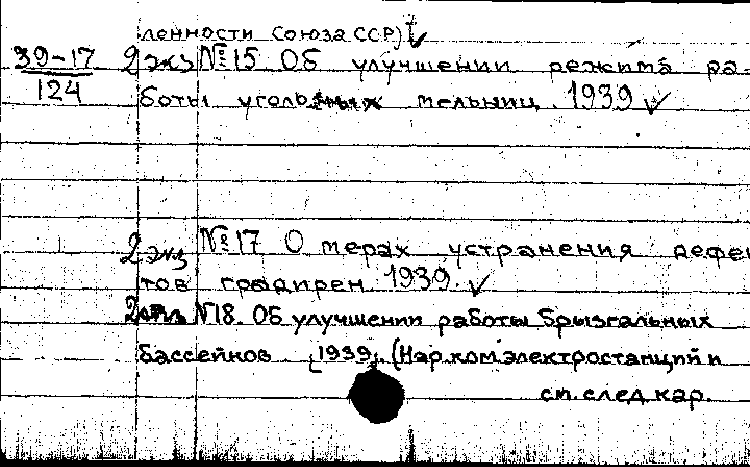 ленности Союза ССР)
39-17 2 экз № 15 Об улучшении режима ра-
124 боты угольных мельниц. 1939
2 экз № 17 О мерах устранения дефек
тов градирен. 1939.
2 экз №18. Об улучшении работы брызгальных
бассейнов [1939]. (Нар.ком.электростанций и
см. след. кар.